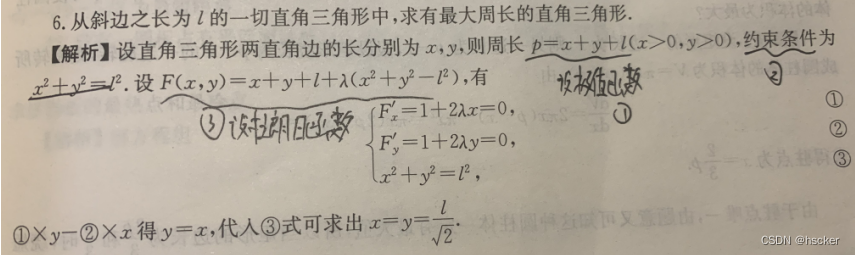 6.从斜边之长为 l 的一切直角三角形中,求有最大周长的直角三角形.
【解析】设直角三角形两直角边的长分别为 x,y,则周长 p=x+y+l(x>0,y>0),约束条件为
x²+y²=l². 设 F(x,y)=x+y+l+λ(x²+y²-l²),有
设极值函数 ①
②
③设拉朗日函数
F′x=1+2λx=0, ①
F′y=1+2λy=0, ②
x²+y²=l², ③
①×y-②×x 得 y=x,代入③式可求出 x=y=l/√2.
CSDN @hscker